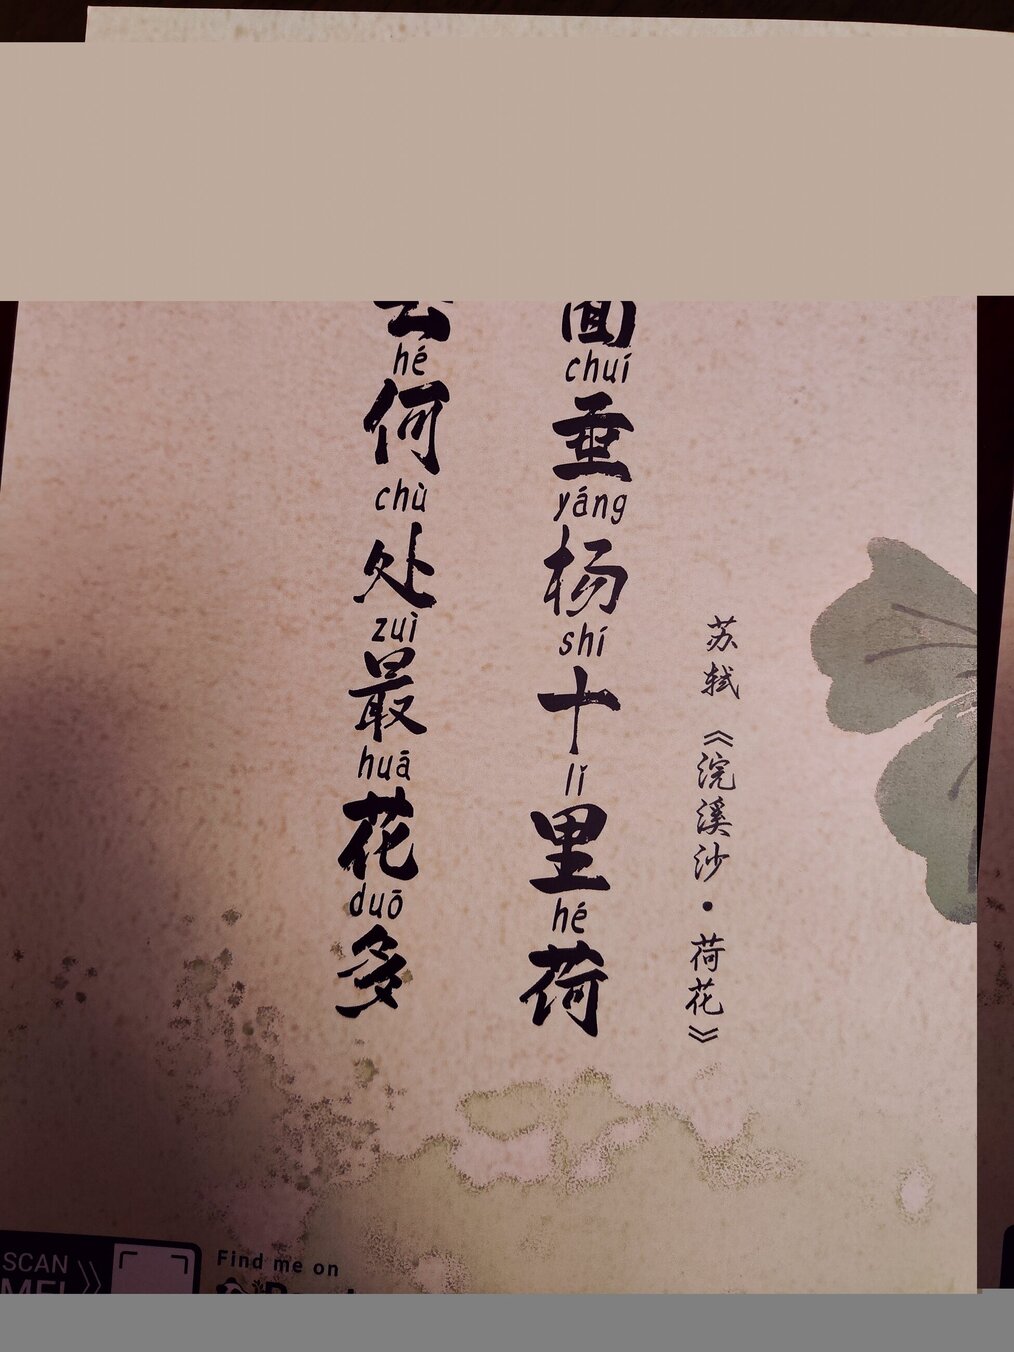 苏轼《浣溪沙·荷花》
面垂杨十里荷
chuí yáng shí lǐ hé
何处最花多
hé chù zuì huā duō
SCAN
ME!
Find me on